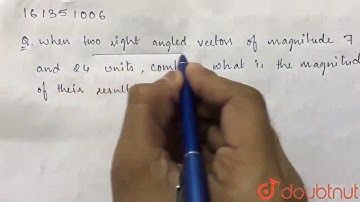 161351006
Q. When two right angled vectors of magnitude 7
and 24 units, comb what is the magnitud
of their result
doubtnut